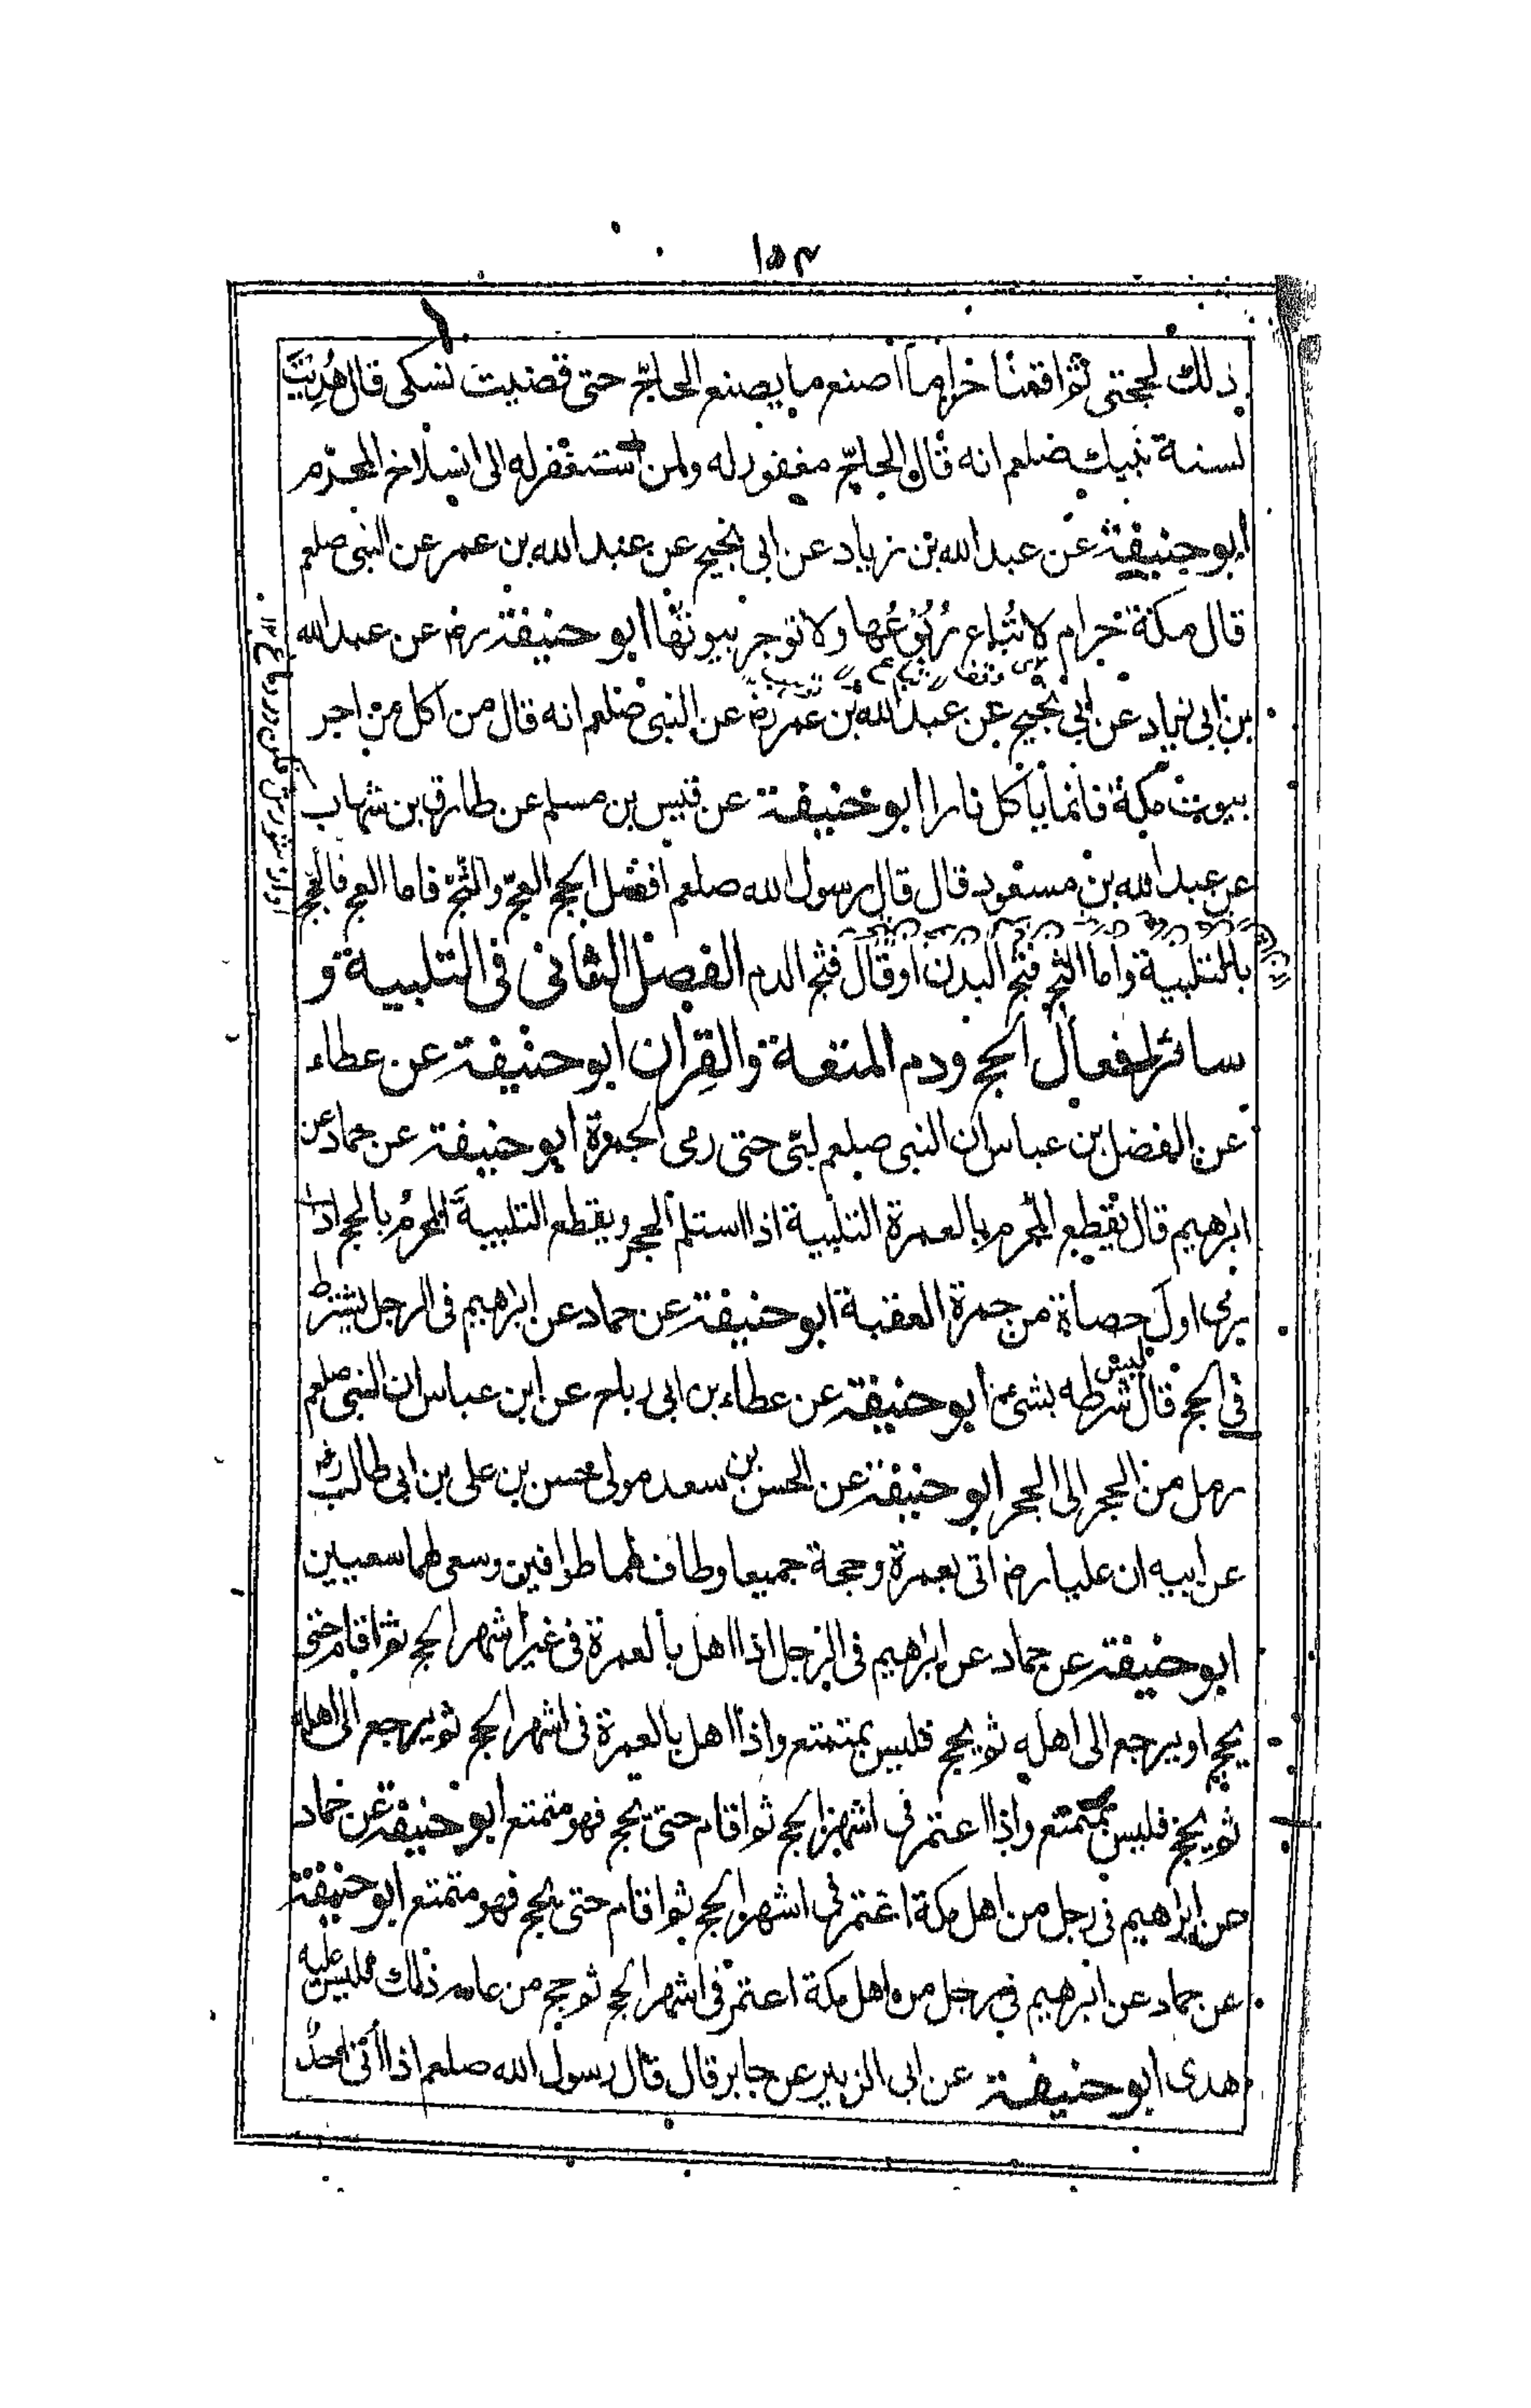 ١٥٣
ذلك لحجتى ثم اقمنا حراما اصنع ما يصنع الحاج حتى قضيت نسكى قال هُدِيتَ
لسنة نبيك صلعم انه قال الحاج مغفور له ولمن استغفر له الى انسلاخ المحرّم
ابو حنيفة عن عبد الله بن زياد عن ابى نجيح عن عبد الله بن عمر عن النبى صلعم
قال مكة حرام لا تُباع رُبُوعُها ولا توجر بيوتها ابو حنيفة رض عن عبد الله
بن ابى زياد عن ابى نجيح عن عبد الله بن عمر رض عن النبى صلعم انه قال من اكل من اجر
بيوت مكة فانما يأكل نارا ابو حنيفة عن قيس بن مسلم عن طارق بن شهاب
عن عبد الله بن مسعود قال قال رسول الله صلعم افضل الحج العجّ والثّجّ فاما العج فالعجّ
بالتلبية واما الثج فثج البدن او قال فثج الدم الفصل الثانى فى التلبية و
سائر افعال الحج ودم المتعة والقِران ابو حنيفة عن عطاء
عن الفضل بن عباس ان النبى صلعم لبّى حتى رمى الجمرة ابو حنيفة عن حماد عن
ابرهيم قال يقطع المحرم بالعمرة التلبية اذا استلم الحجر ويقطع التلبيةَ المحرمُ بالحج اذا
يرمى اولَ حصاة من جمرة العقبة ابو حنيفة عن حماد عن ابرهيم فى الرجل يشترط
فى الحج قال ليس شرطه بشىء ابو حنيفة عن عطاء بن ابى رباح عن ابن عباس ان النبى صلعم
رمل من الحجر الى الحجر ابو حنيفة عن الحسن بن سعد مولى حسن بن على بن ابى طالب رض
عن ابيه ان عليا رض اتى بعمرة وحجة جميعا وطاف لهما طوافين وسعى لهما سعيين
ابو حنيفة عن حماد عن ابرهيم فى الرجل اذا اهل بالعمرة فى غير اشهر الحج ثم اقام حتى
يحج او يرجع الى اهله ثم يحج فليس بمتمتع واذا اهل بالعمرة فى اشهر الحج ثم يرجع الى اهله
ثم يحج فليس بمتمتع واذا اعتمر فى اشهر الحج ثم اقام حتى يحج فهو متمتع ابو حنيفة عن حماد
عن ابرهيم فى رجل من اهل مكة اعتمر فى اشهر الحج ثم اقام حتى يحج فهو متمتع ابو حنيفة
عن حماد عن ابرهيم فى رجل من اهل مكة اعتمر فى اشهر الحج ثم حج من عامه ذلك فليس عليه
هدى ابو حنيفة عن ابى الزبير عن جابر قال قال رسول الله صلعم اذا اتى احدُ